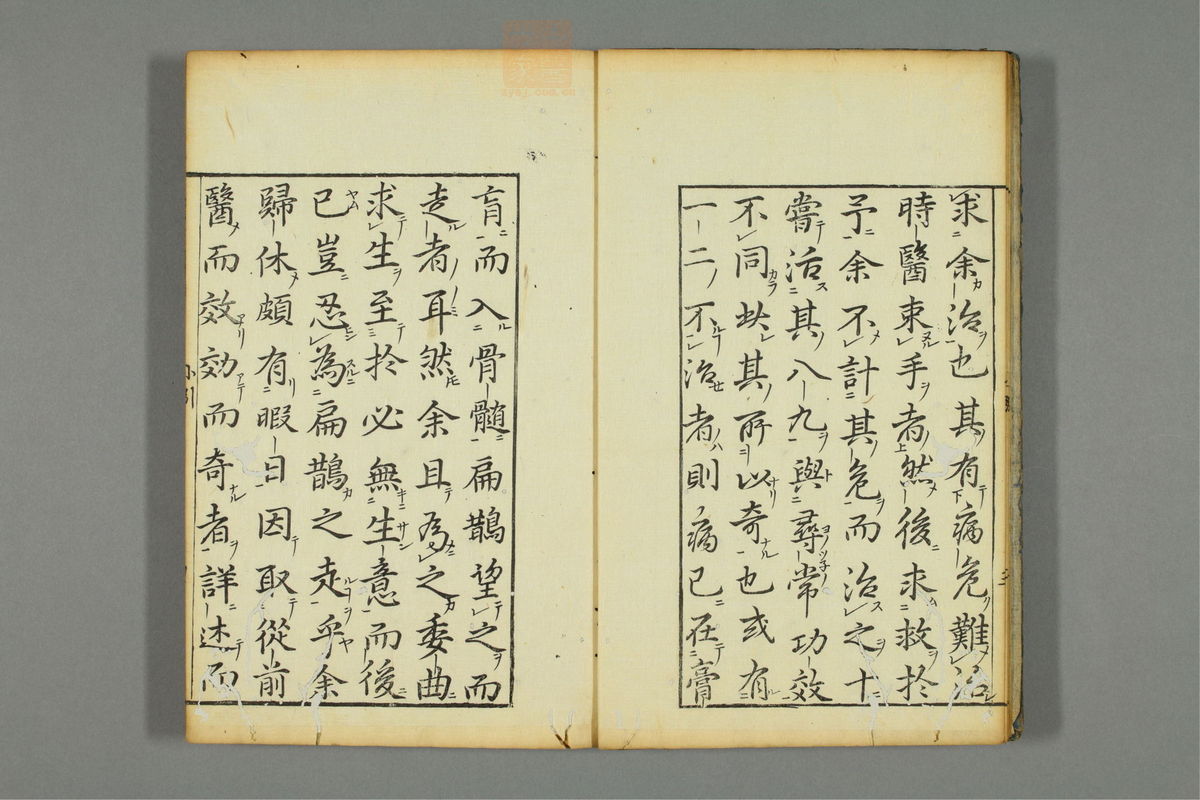 求余治也其有病危難治
時醫束手者然後求救扵
予余不計其危而治之十
嘗活其八九與尋常功效
不同此其所以奇也或有
一二不治者則病已在膏
肓而入骨髓扁鵲望之而
走者耳然余且為之委曲
求生至扵必無生意而後
已豈忍為扁鵲之走乎余
歸休頗有暇日因取從前
醫而效効而奇者詳述而
小引